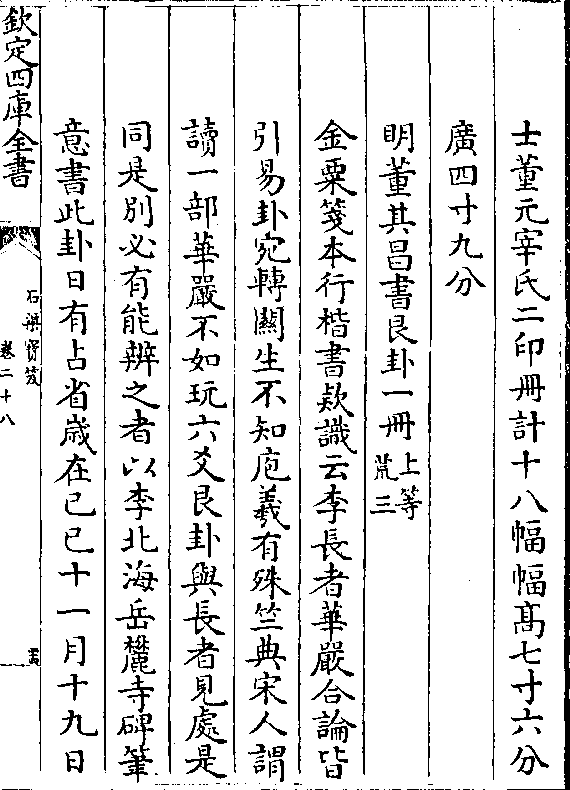 士董元宰氏二印冊計十八幅幅髙七寸六分
廣四寸九分
明董其昌書艮卦一冊上等荒三
金粟箋本行楷書欵識云李長者華嚴合論皆
引易卦宛轉闗生不知庖羲有殊竺典宋人謂
讀一部華嚴不如玩六爻艮卦與長者見處是
同是別必有能辨之者以李北海岳麓寺碑筆
意書此卦日有占省嵗在己巳十一月十九日
欽定四庫全書
石渠寳笈
卷二十八